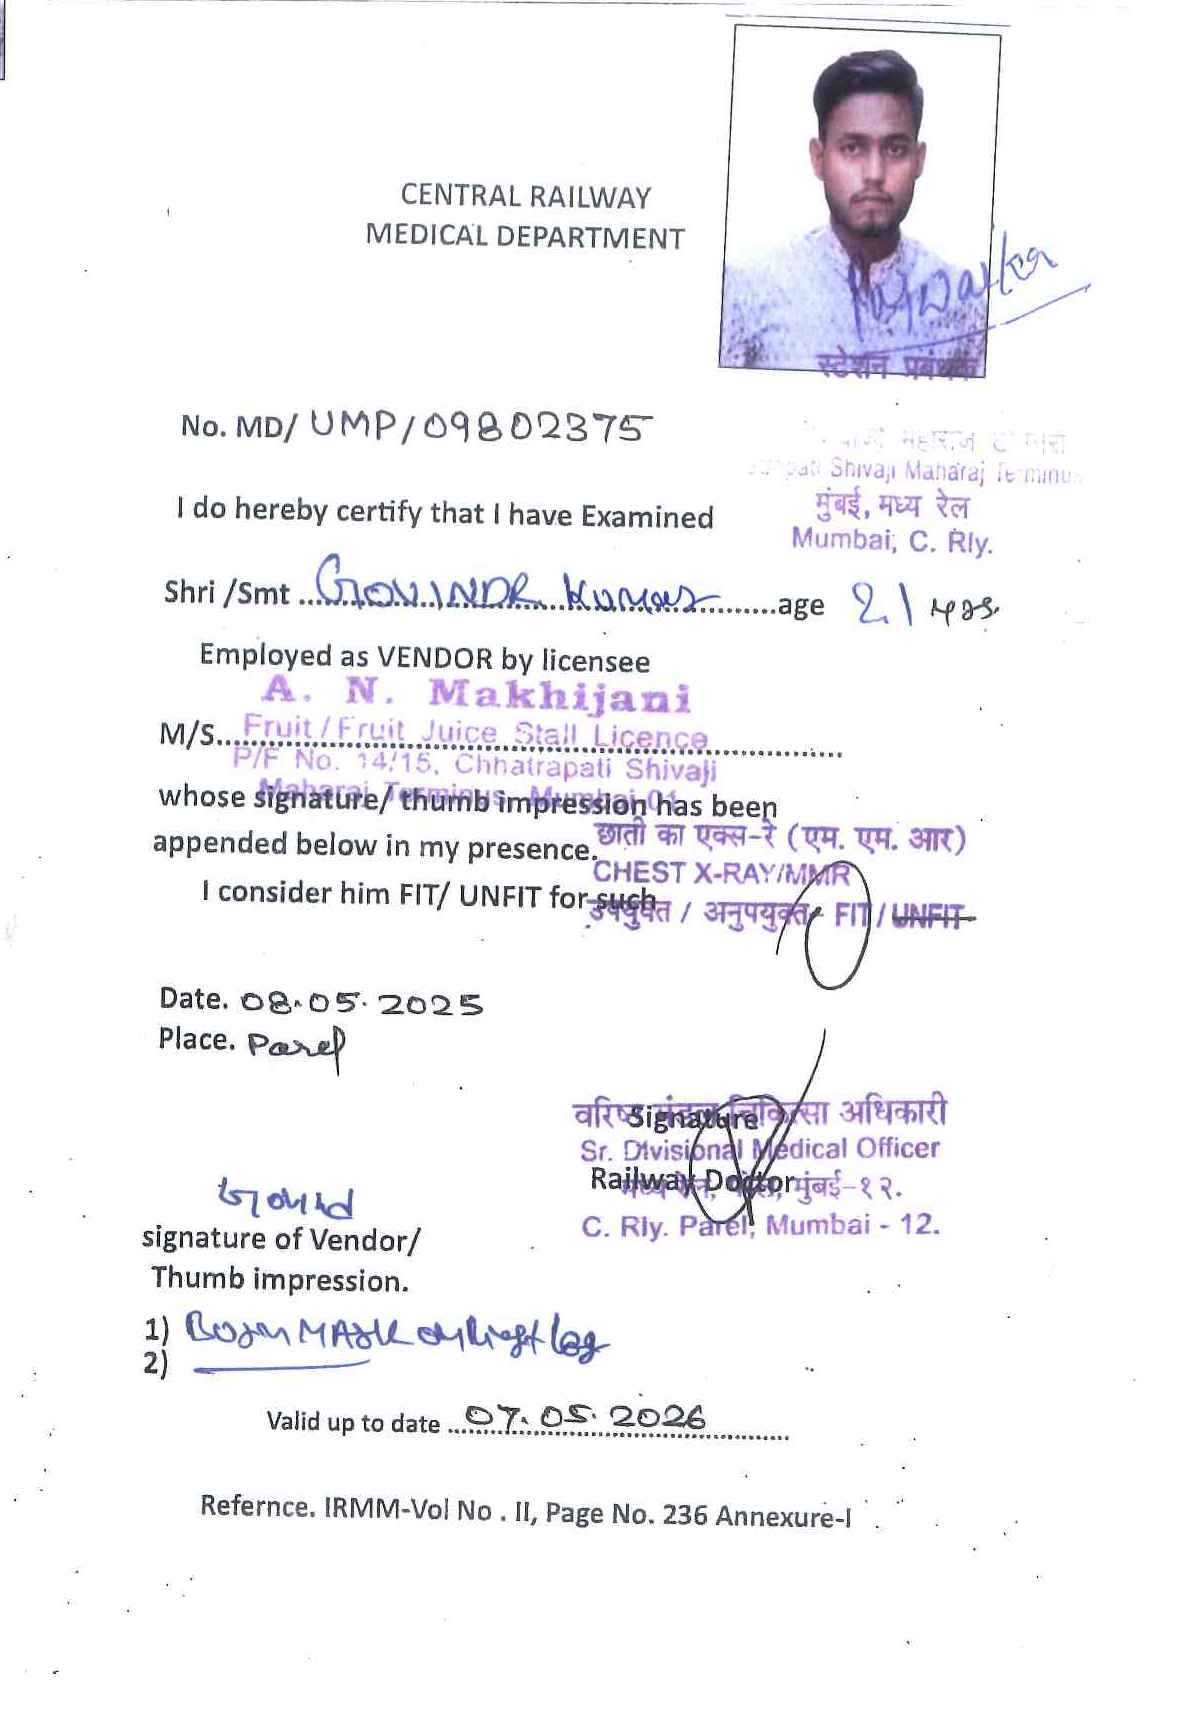 CENTRAL RAILWAY
MEDICAL DEPARTMENT
स्टेशन प्रबंधक
No. MD/ UMP/09802375
महाराज
Shivaji Maharaj Terminus
मुंबई, मध्य रेल
Mumbai, C. Rly.
I do hereby certify that I have Examined
Shri /Smt GOVINDR Kumar age 21 yrs.
Employed as VENDOR by licensee
A. N. Makhijani
M/S. Fruit / Fruit Juice Stall Licence
P/F No. 14/15, Chhatrapati Shivaji
Maharaj Terminus, Mumbai-01
whose signature/ thumb impression has been
appended below in my presence.
छाती का एक्स-रे (एम. एम. आर)
CHEST X-RAY/MMR
I consider him FIT/ UNFIT for such
उपयुक्त / अनुपयुक्त FIT / UNFIT
Date. 08.05.2025
Place. Parel
वरिष्ठ मंडल चिकित्सा अधिकारी
Signature
Sr. Divisional Medical Officer
Railway Doctor
मुंबई-१२.
C. Rly. Parel, Mumbai - 12.
signature of Vendor/
Thumb impression.
1) BORN MARK on Right leg
2)
Valid up to date 07.05.2026
Refernce. IRMM-Vol No . II, Page No. 236 Annexure-I